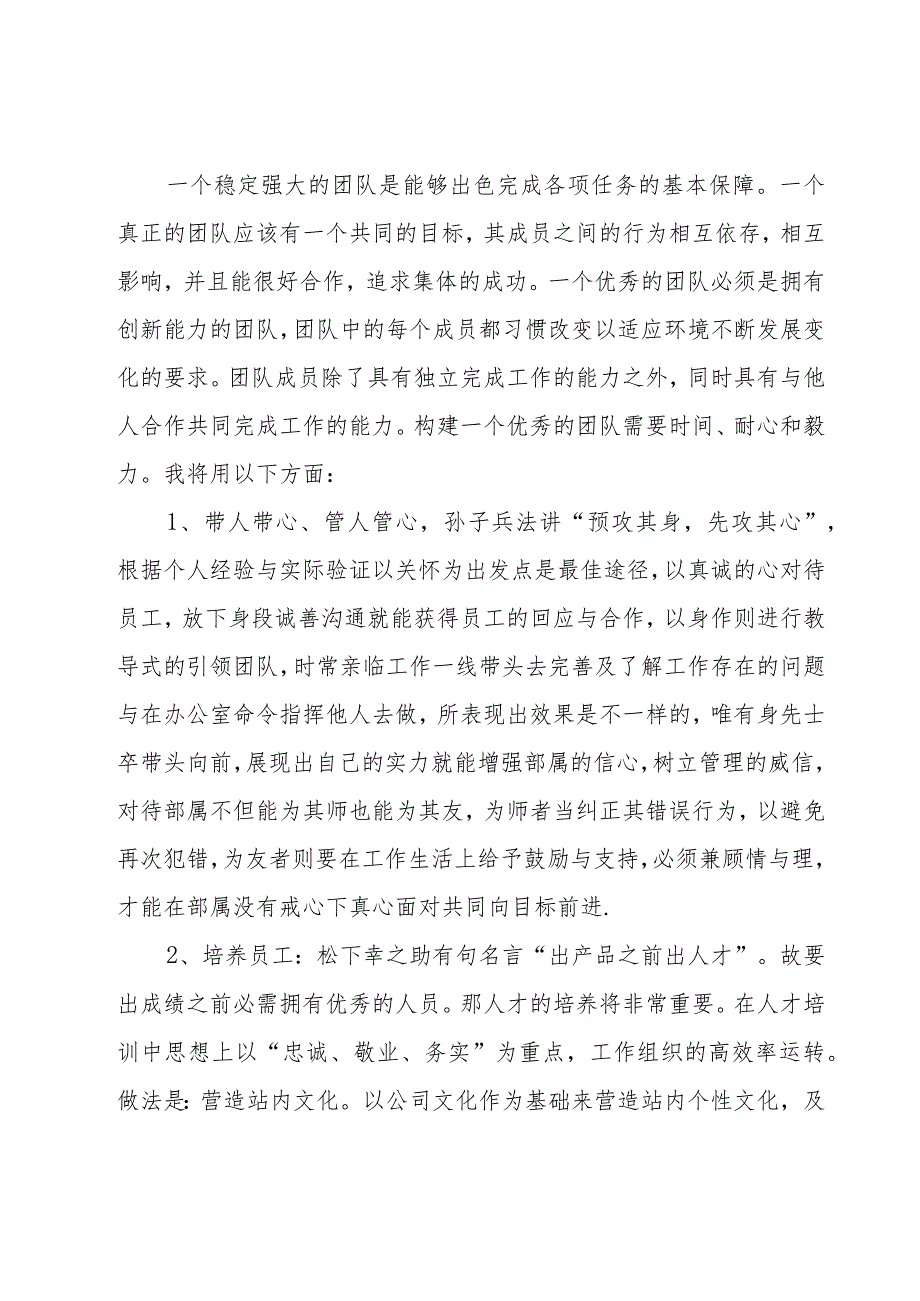 一个稳定强大的团队是能够出色完成各项任务的基本保障。一个
真正的团队应该有一个共同的目标，其成员之间的行为相互依存，相互
影响，并且能很好合作，追求集体的成功。一个优秀的团队必须是拥有
创新能力的团队，团队中的每个成员都习惯改变以适应环境不断发展变
化的要求。团队成员除了具有独立完成工作的能力之外，同时具有与他
人合作共同完成工作的能力。构建一个优秀的团队需要时间、耐心和毅
力。我将用以下方面：
1、带人带心、管人管心，孙子兵法讲“预攻其身，先攻其心”，
根据个人经验与实际验证以关怀为出发点是最佳途径，以真诚的心对待
员工，放下身段诚善沟通就能获得员工的回应与合作，以身作则进行教
导式的引领团队，时常亲临工作一线带头去完善及了解工作存在的问题
与在办公室命令指挥他人去做，所表现出效果是不一样的，唯有身先士
卒带头向前，展现出自己的实力就能增强部属的信心，树立管理的威信，
对待部属不但能为其师也能为其友，为师者当纠正其错误行为，以避免
再次犯错，为友者则要在工作生活上给予鼓励与支持，必须兼顾情与理，
才能在部属没有戒心下真心面对共同向目标前进.
2、培养员工：松下幸之助有句名言“出产品之前出人才”。故要
出成绩之前必需拥有优秀的人员。那人才的培养将非常重要。在人才培
训中思想上以“忠诚、敬业、务实”为重点，工作组织的高效率运转。
做法是：营造站内文化。以公司文化作为基础来营造站内个性文化，及